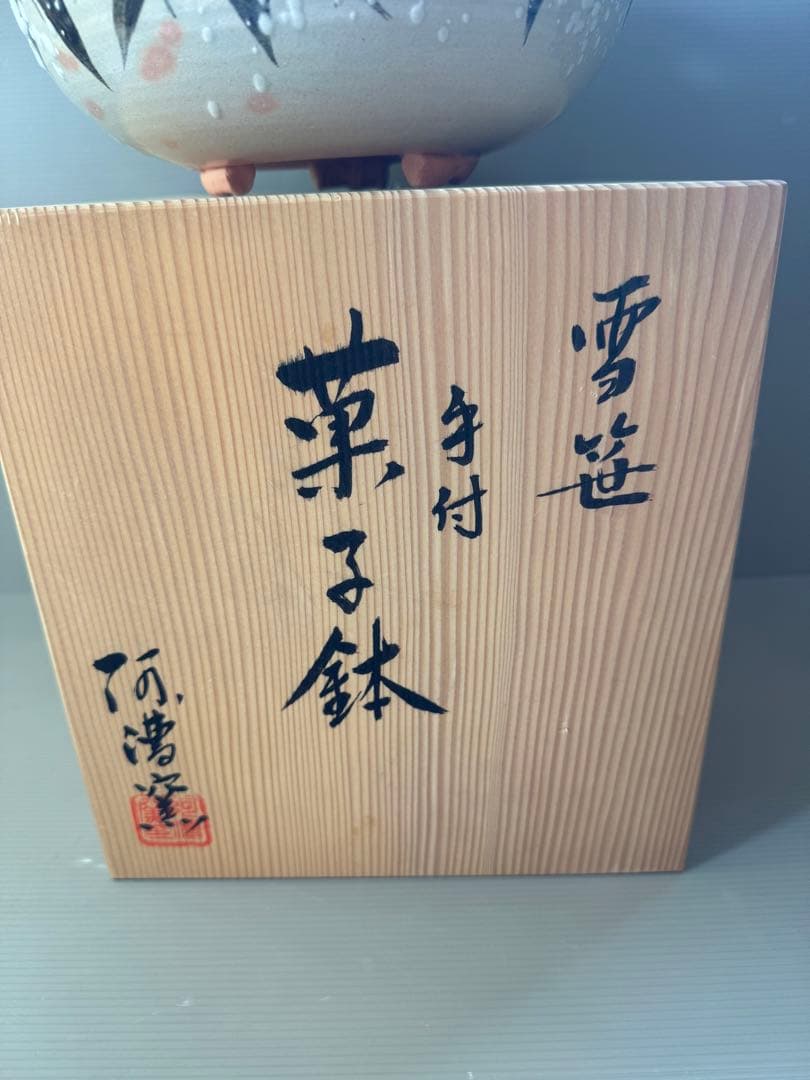 雪笹
手付
菓子鉢
阿漕窯